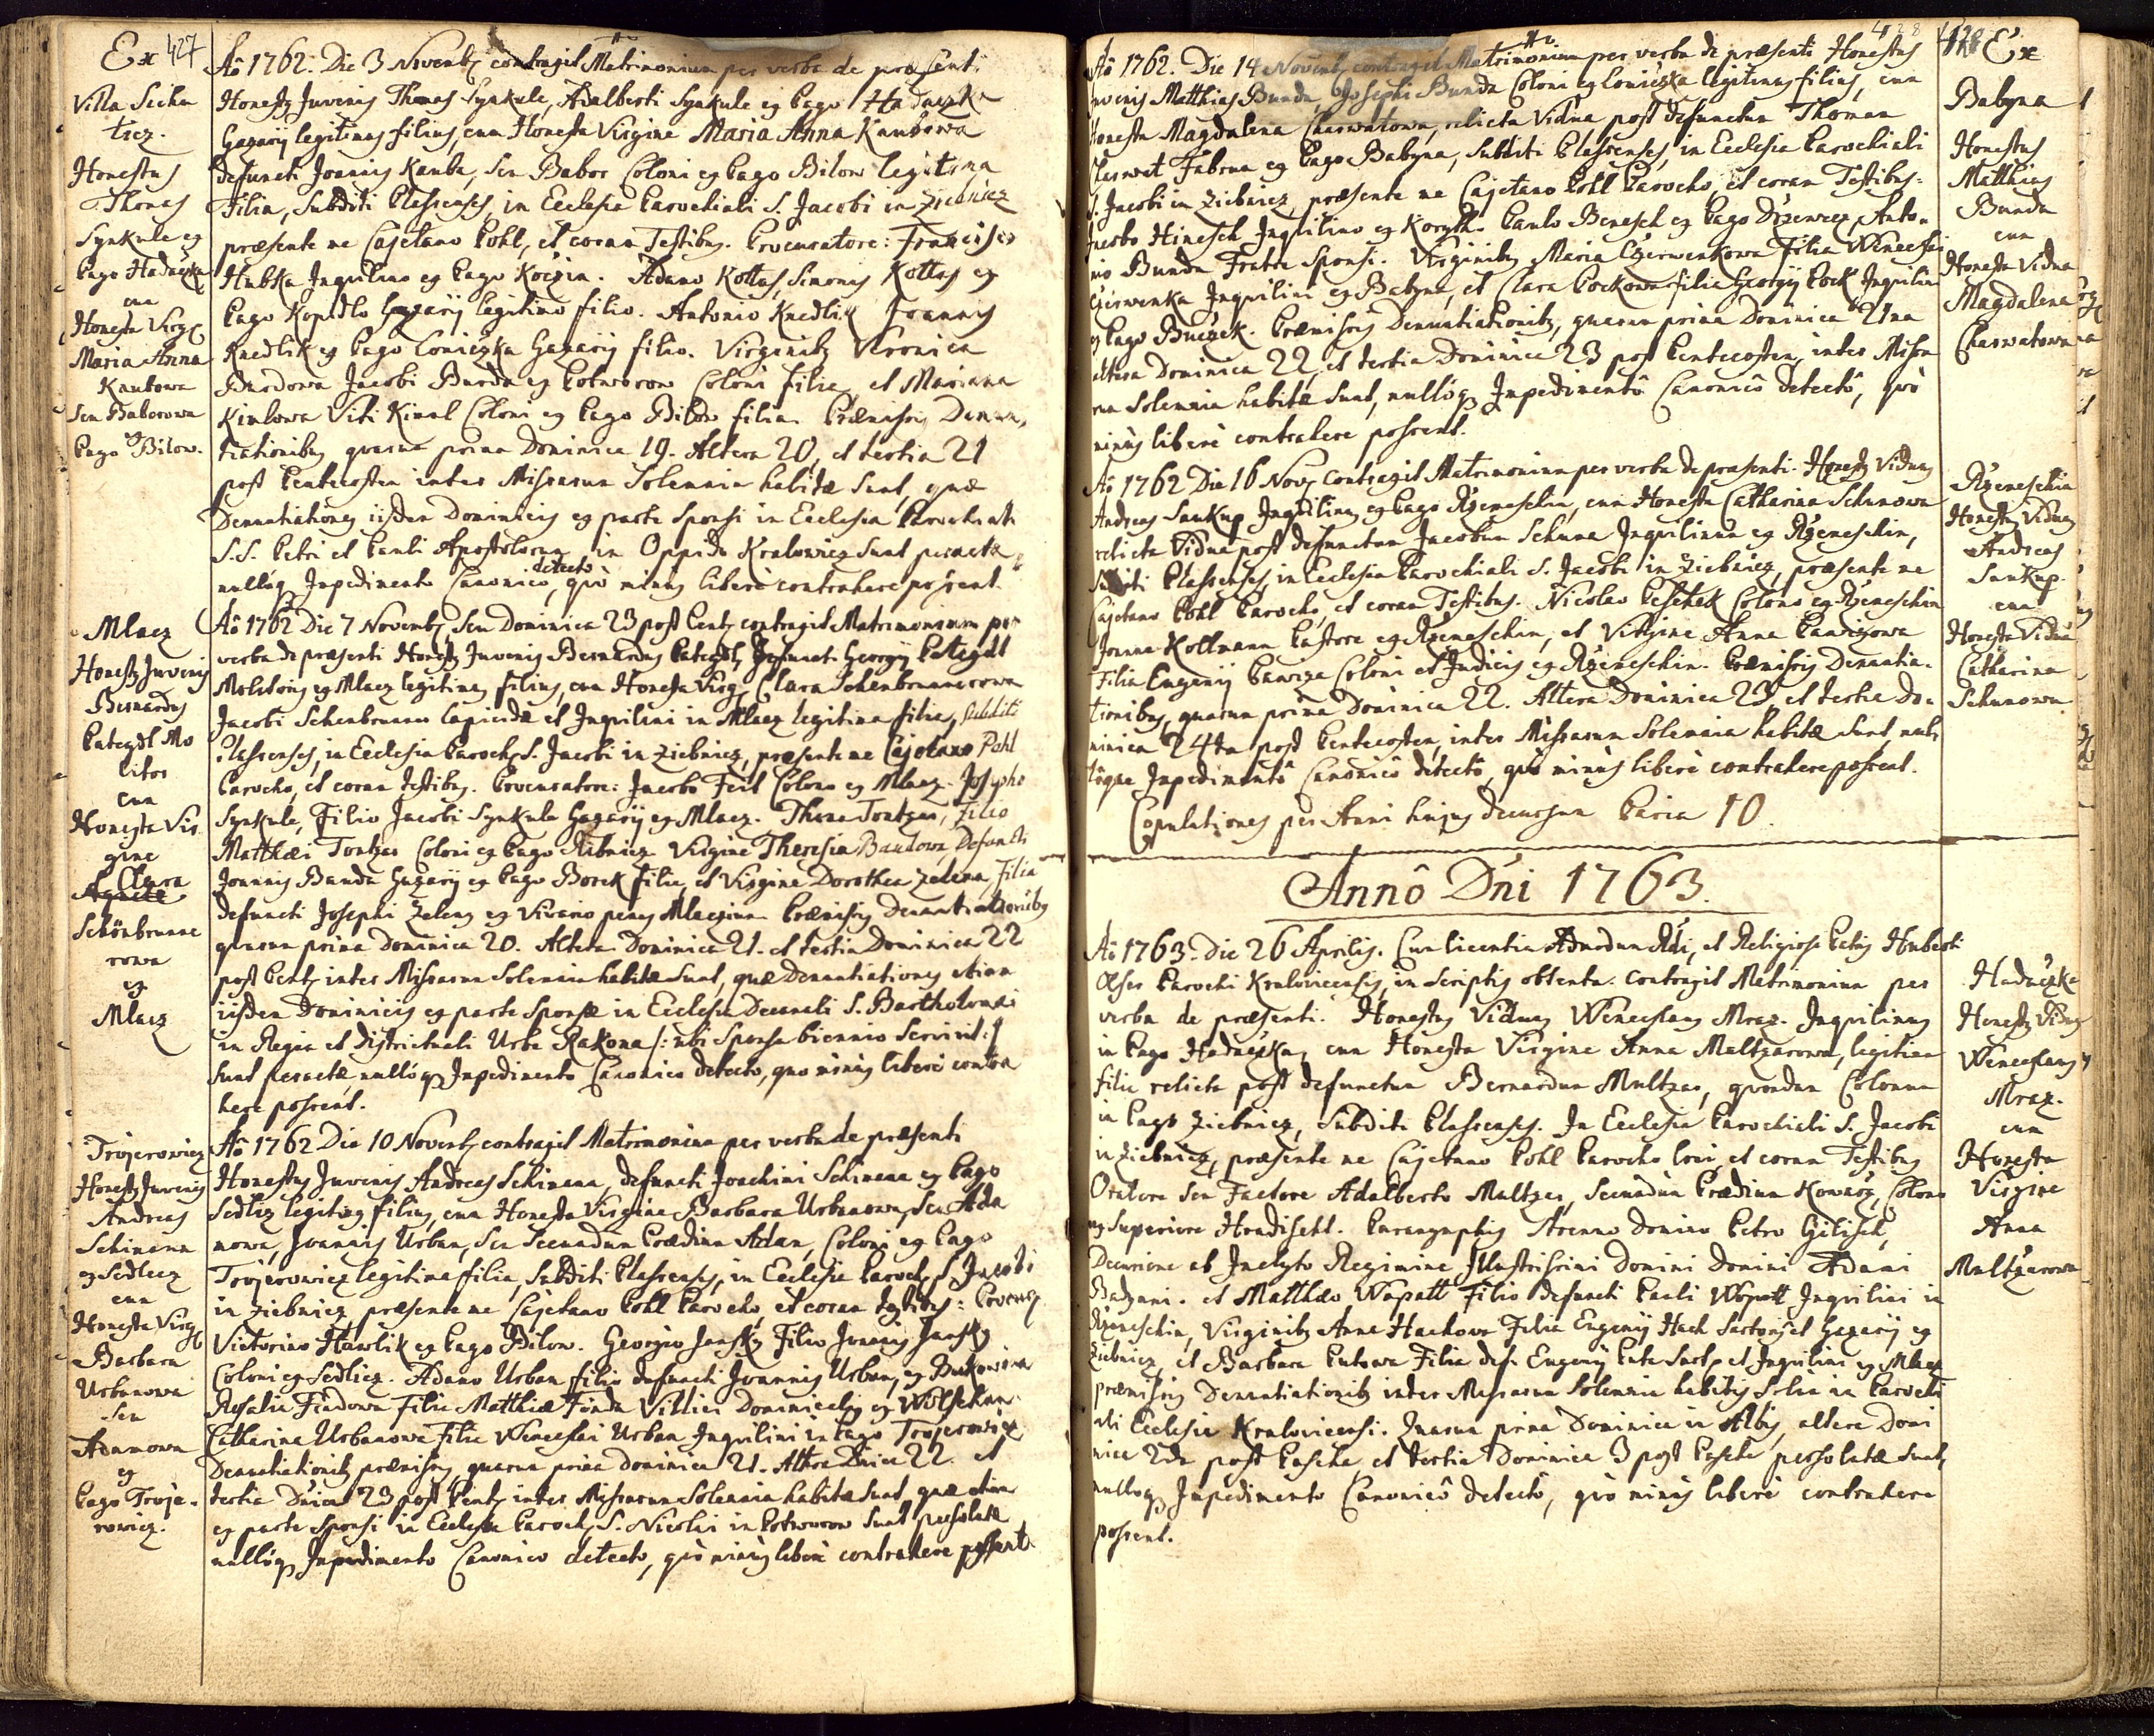 Ex 427
Villa Sicha
trcz.
Honestus
Thomas
Synkule ex
Pago Hadaczka
cum
Honesta Virg
Maria Anna
Kaubowa
seu Baborowa
ex
Pago Bilow.
Aô 1762. Die 3 Novemb contraxit Matrimonium per verba de præsenti
Honestg Juvenis Thomas Synkule, Adalberti Synkule ex Pago Hadaczka
Gazarÿ legitimus filius, cum Honesta Virgine Maria Anna Kaubowa
defuncti Joannis Kauba, seu Babor Coloni ex Pago Bilow legitima
Filia, Subditi Plassenses, in Ecclesia Parochiali S. Jacobi in Ziebnicz
præsente me Cajetano Pohl, et coram Testibus. Procuratore: Francisco
Hubka Inquilino ex Pago Koczin. Adamo Kottas, Simonis Kottas ex
Pago Kopidlo Gazarÿ legitimo filio. Antonio Knedlik Joannis
Knedlik ex Pago Loniczka Gazarÿ filio. Virginib Veronica
Burdowa Jacobi Burda ex Potworow Coloni filia, et Mariana
Kimlowa Viti Kiml Coloni ex Pago Bilow filia. Præmissis Denun,
tiationibus quarum prima Dominica 19. Altera 20, et tertia 21
post Pentecosten inter Missarum Solemnia habitæ sunt, quæ
Denuntiationes iisdem Dominicis ex parte Sponsi in Ecclesia Parochiali
S.S. Petri et Pauli Apostolorum, in Oppido Kralowicz sunt peractæ,
nullóq Impedimento Canonico detecto, quò minus liberè contrahere possent.
Mlacz
Honestg Juvenis
Bernardus
Pategdl Mo
litor
cum
Honesta Vir
gine
Clara
Agnete
Schönbrunne
rowa
ex
Mlacz
Aô 1762 Die 7 Novemb, seu Dominica 23 post Pent contraxit Matrimonium per
verba de præsenti Honestg Juvenis Bernardus Pategdl, Defuncti Georgÿ Pategdl
Molitoris ex Mlacz legitimus filius, cum Honesta Virg Clara Schenbrunnerowa
Jacobi Schenbrunner Lapicidæ et Inquilini in Mlacz legitima filia, Subditi
Plassenses, in Ecclesia Paroch S. Jacobi in Ziebnicz, præsente me Cajetano Pohl
Parocho, et coram testibus. Procuratore: Jacobo Feit Colono ex Mlacz. Josepho
Synkule, Filio Jacobi Synkule Gazarÿ ex Mlacz. Thoma Tontzer, Filio
Matthæi Tontzer Coloni ex Pago Ribnicz Virgine Theresia Baudowa, Defuncti
Joannis Bauda Gazarÿ ex Pago Borek filia, et Virgine Dorothea Zelena Filia
defuncti Josephi Zeleny ex Vivario penes Mlaczium. Præmissis Denuntiationibus
quarum prima Dominica 20. Altera Dominica 21. et tertia Dominica 22
post Pent inter Missarum Solemnia habitæ sunt, quæ Denuntiationes etiam
iisdem Dominicis ex parte Sponsæ in Ecclesia Decanali S. Bartholomæi
in Regia et Districtuali Urbe Rakona /: ubi Sponsa biennio servivit :/
sunt peractæ nullóq Impedimento Canonico detecto, quo minus liberè contra
here possent.
Trojerowicz
Honestg Juvenis
Andreas
Schimana
ex Sedlecz
cum
Honesta Virg
Barbara
Urbanowa
seu
Adamowa
ex
Pago Troje-
rowicz.
Aô 1762 Die 10 Novemb contraxit Matrimonium per verba de præsenti
Honestus Juvenis Andreas Schimana, defuncti Joachimi Schimana ex Pago
Sedlez legitimg filius, cum Honesta Virgine Barbara Urbanowa, seu Ada
mowa, Joannis Urban, seu Secundum Prædium Adam, Coloni ex Pago
Trojerowicz legitima filia, Subditi Plassenses, in Ecclesia Paroch S Jacobi
in Ziebnicz præsente me Cajetano Pohl Parocho, et coram testibus:
Victorino Hawlik ex Pago Bilow. Georgio Jansky Filio Joannis Jansky
Coloni ex Sedlicz. Adamo Urban filio defuncti Joannis Urban, ex Bukowina
Rosalia Findowa filia Matthiæ Finda Villici Dominicalis ex Wolschan
Catharina Urbanowa filia Wenceslai Urban Inquilini in Pago Trojerowicz
Denuntiationib præmissis, quarum prima Dominica 21. Altera Dnica 22. et
tertia Dnica 23 post Pent inter Missarum Solemnia habitæ sunt, quæ etiam
ex parte Sponsi in Ecclesia Paroch S. Nicolai in Potworow sunt persolutæ
nullóq Impedimento Canonico detecto, quò minus liberè contrahere possent
428
Ex
Aô 1762. Die 14 Novemb contraxit Matrimonium per verba de præsenti Honestus
Juvenis Matthias Bunda, Josephi Bunda Coloni ex Loniczka legitimus filius, cum
Honesta Magdalena Charwatowa, relicta Vidua post defunctum Thomam
Charwat Fabrum ex Pago Babyna, Subditi Plassenses, in Ecclesia Parochiali
S. Jacobi in Ziebnicz, præsente me Cajetano Pohl Parocho, et coram Testibus:
Jacobo Hinesch Inquilino ex Koryth. Paulo Benesch ex Pago Drzewicz, Anto-
nio Bunda Fratre Sponsi. Virginib Maria Czerwenkowa Filia Wenceslai
Czerwenka Inquilini ex Babyna, et Clara Pockowa filia Georgÿ Pock Inquilini
ex Pago Buczek. Præmissis Denuntiationib, quarum prima Dominica 21ma
altera Dominica 22, et tertia Dominica 23 post Pentecosten, inter Missa
rum Solemnia habitæ sunt, nullóq Impedimentô Canonicô detectô, quò
minùs liberè contrahere possent.
Babyna
Honestus
Matthias
Bunda
cum
Honesta Vidua
Magdalena
Charwatowa
Aô 1762 Die 16 Nov contraxit Matrimonium per verba de præsenti. Honestg Viduus
Andreas Saukup Inquilinus ex Pago Rzemeschin, cum Honesta Catharina Schunowa
relicta Vidua post defunctum Jacobum Schuna Inquilinum ex Rzemeschin,
Subditi Plassenses, in Ecclesia Parochiali S. Jacobi in Ziebnicz, præsente me
Cajetano Pohl Parocho, et coram Testibus. Nicolao Peschek Colono ex Rzemeschin
Joanne Kollmann Pastore ex Rzemeschin, et Virgine Anna Pawizowa
Filia Eugenÿ Pawiza Coloni et Judicis ex Rzemeschin. Præmissis Denuntia-
tionibus, quarum prima Dominica 22. Altera Dominica 23 et tertia Do-
minica 24ta post Pentecosten, inter Missarum Solemnia habitæ sunt nul-
lôque Impedimentô Canonicô detectô, quò minùs liberè contrahere possent.
Rzemeschin
Honestg Viduus
Andreas
Saukup.
cum
Honesta Vidua
Catharina
Schunowa
Copulationes per Anni hujus decursum Paria 10.
Annô Dni 1763.
Aô 1763. Die 26 Aprilis. Cum licentia Admodum Rdi, et Religiosi Patris Huberti
Parochi Kralovicensis, in scriptis obtenta. contraxit Matrimonium per
verba de præsenti. Honestus Viduus Wenceslaus Mraz. Inquilinus
in Pago Hadaczka, cum Honesta Virgine Anna Maltzarowa, legitima
filia relicta post defunctum Bernardum Multzar, quondam Colonum
in Pago Ziebnicz, Subditi Plassenses. In Ecclesia Parochiali S. Jacobi
in Ziebnicz, præsente me Cajetano Pohl Parocho loci, et coram Testibus
Oratore seu Factore Adalberto Maltzer, Secundum Prædium Kowarz, Colono
ex Superiore Hradischt. Paranymphis Strenuo Domino Petro Gilisch,
Decurione ab Inclyto Regimine Illustrissimi Domini Domini Adami
Badyani. et Matthæo Wopatt Filio defuncti Pauli Wopatt Inquilini in
Rzemeschin, Virginib Anna Hachowa Filia Eugenÿ Hach Sartoris et Gazarÿ ex
Ziebnicz, et Barbara Putowa Filia def. Eugenÿ Puta Sart, et Inquilini ex Mlacz
præmissis Denuntiationib inter Missarum Solemnia habitis solum in Parochi
ali Ecclesia Kralovicensi. Quarum prima Dominica in Albis, altera Domi
nica 2da post Pascha et tertia Dominica 3 post Pascha persolutæ sunt,
nulloq Impedimento Canonicô detectô, quò minùs liberè contrahere
possent.
Hadaczka
Honestg Viduus
Wenceslaus
Mraz.
cum
Honesta
Virgine
Anna
Multzarowa